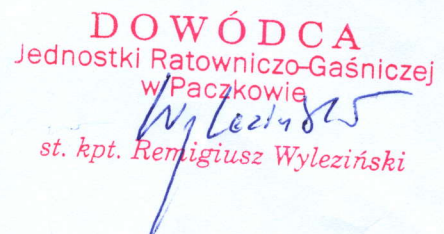 DOWÓDCA
Jednostki Ratowniczo-Gaśniczej
w Paczkowie
Wyleziński
st. kpt. Remigiusz Wyleziński